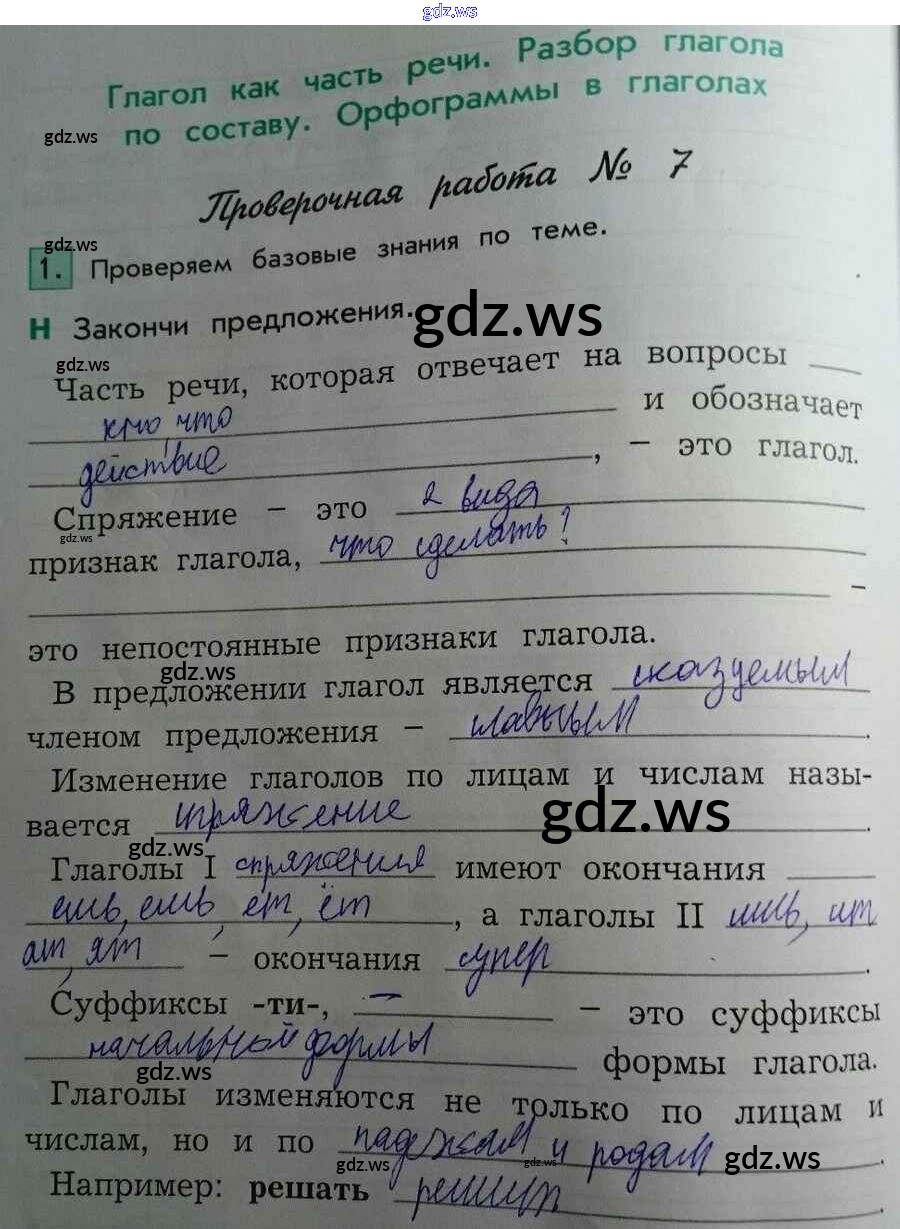 gdz.ws
Глагол как часть речи. Разбор глагола
gdz.ws по составу. Орфограммы в глаголах
Проверочная работа № 7
gdz.ws
1. Проверяем базовые знания по теме.
Н Закончи предложения. gdz.ws
gdz.ws
Часть речи, которая отвечает на вопросы
кто что и обозначает
действие, – это глагол.
Спряжение – это 2 вида
gdz.ws
признак глагола, что сделать?
–
это непостоянные признаки глагола.
gdz.ws
В предложении глагол является сказуемым
членом предложения – главным.
Изменение глаголов по лицам и числам назы-
вается спряжение. gdz.ws
gdz.ws
Глаголы I спряжения имеют окончания
ешь, ешь, ет, ёт, а глаголы II ишь, ит
ат, ят – окончания супер.
Суффиксы -ти-, — – это суффиксы
начальной формы формы глагола.
gdz.ws
Глаголы изменяются не только по лицам и
числам, но и по падежам и родам.
gdz.ws gdz.ws gdz.ws
Например: решать